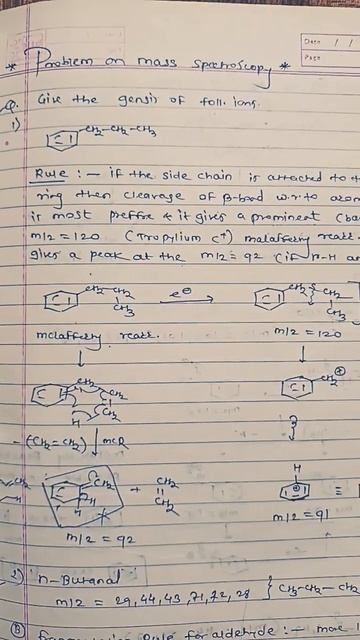 Date / /
Page
* Problem on mass spectroscopy *
Q. Give the gensis of foll. ions.
1)
CH₂-CH₂-CH₃
Rule :- if the side chain is attached to
ring then cleavage of β-bond w.r.to
is most preffre & it gives a prominent (ba
m/z = 120 (Tropylium C⁺) malafferty reatt.
gives a peak at the m/z = 92 (if
CH₂-CH₂ CH₃ e⊖ CH₂ CH₂ CH₃
mclafferty reatt. m/z = 120
↓ ↓
CH₂ CH₂ CH₂ H CH₂⊕
-(CH₂=CH₂) ↓ mcR
CH₂ H H + CH₂ = CH₂ H ⊕ ≡
m/z = 91
m/z = 92
2) n-Butanal
m/z = 29, 44, 43, 71, 72, 28 } CH₃-CH₂-CH₂
B Rule for aldehyde :- more